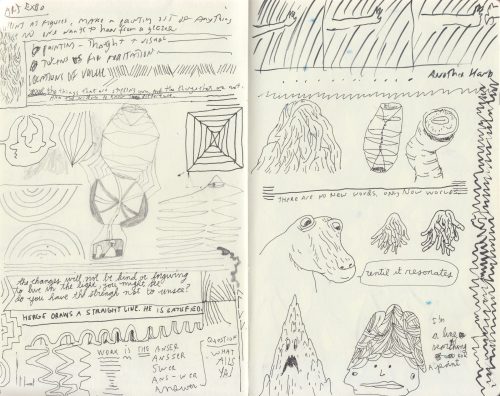 ART EXPO
AT FIGURES, MAKE A PAINTING OUT OF ANYTHING
NO ONE WANTS TO HEAR FROM A
PAINTING - THOUGHT + VISUAL
TOKENS OF
LOCATIONS OF VALUE
the things that are
the changes will not be kind or forgiving
to live in the light, you might see
do you have the strengh not to unsee?
HERGE DRAWS A STRAIGHT LINE. HE IS SATISFIED.
WORK IS THE ANSER
ANSSER
SWER
ANS-WER
ANSWER
QUESTION
WHAT
AILS
YA?
ANOTHER HARD
THERE ARE NO NEW WORDS, ONLY NOW WORLDS
until it resonates
I'm
a line
searching
for
a point